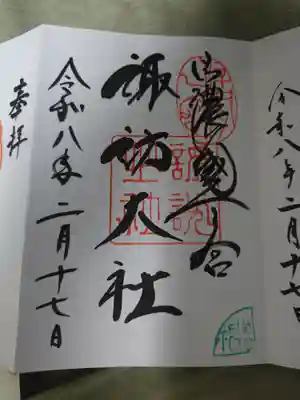 令和八年二月十七日
信濃國一之宮
諏訪大社
令和八年二月十七日
奉拝